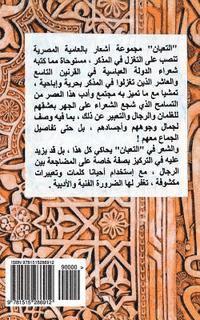 "التعبان" مجموعة أشعار بالعامية المصرية
تنصب على التغزل في المذكر، مستوحاة مما كتبه
شعراء الدولة العباسية في القرنين التاسع
والعاشر الذين تغزلوا في المذكر بحرية وإباحية،
تمشيا مع ما تميز به مجتمع وأدب هذا العصر من
التسامح الذي شجع الشعراء على الجهر بعشقهم
للغلمان والرجال والتعبير عن ذلك، بما فيه وصف
لجمال وجوههم وأجسادهم، بل حتى تفاصيل
الجماع معهم!
والشعر في "التعبان" يحاكي كل هذا، بل قد يزيد
عليه في التركيز بصفة خاصة على المضاجعة بين
الرجال، مع إستخدام أحيانا كلمات وتعبيرات
مكشوفة، تغفر لها الضرورة الفنية والأدبية.
ISBN 9781515286912
90000
9 781515 286912